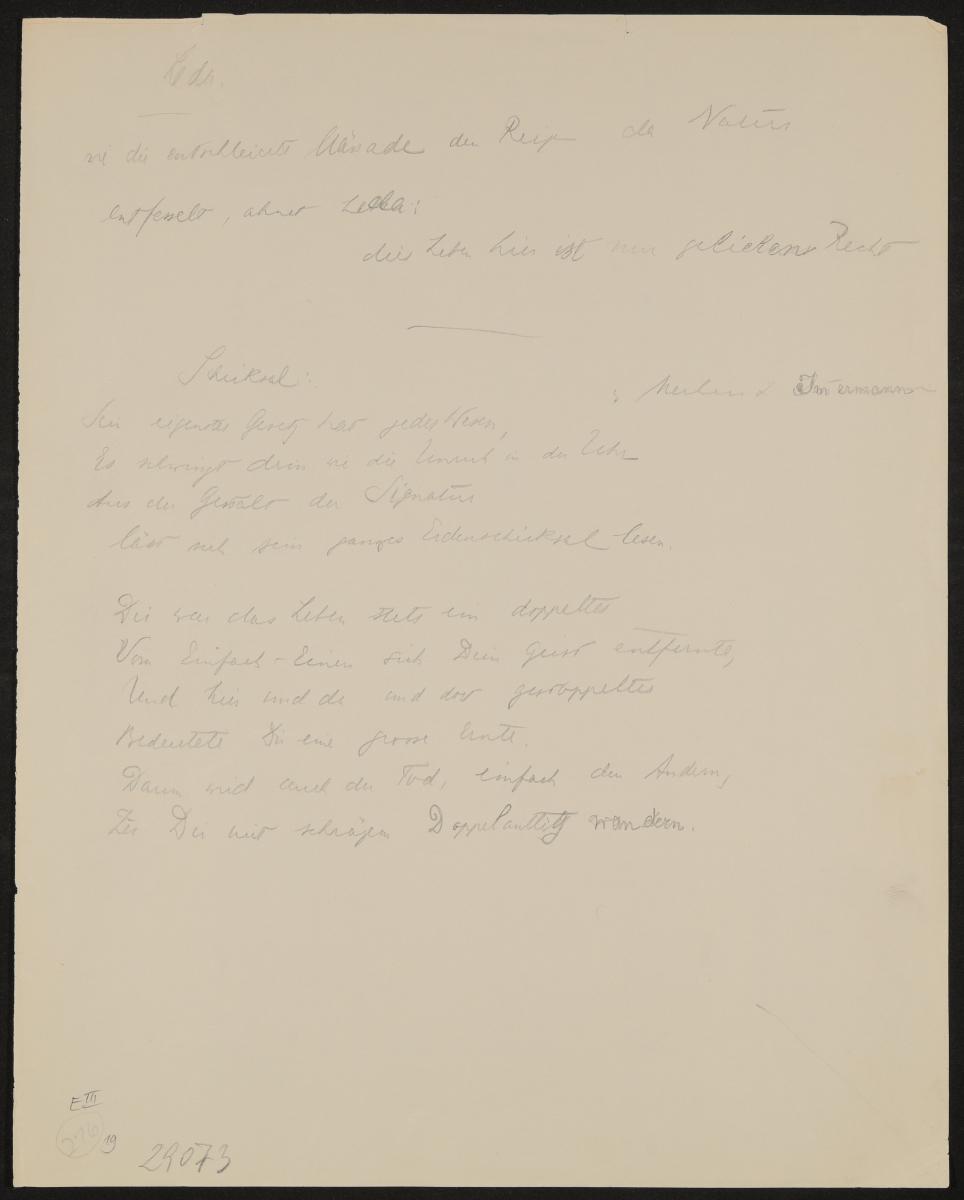 Leda.
wie die entschleierte Mänade den Reigen der Natur
entfesselt, ahnet Leda:
dies Leben hier ist nur geliehens Recht
Schicksal:
Merlin Immermann
Sein eigenstes Gesetz hat jedes Wesen,
Es schwingt drin wie die Unruh in der Uhr
Aus der Gewalt der Signatur
lässt sich sein ganzes Erdenschicksal lesen.
Dir war das Leben stets ein doppeltes
Vom Einfach-Einen sich Dein Geist entfernte,
Und hier und da und dort gestoppeltes
Bedeutete Dir eine grosse Ernte.
Darum wird auch der Tod, einfach den Andern,
Zu Dir mit schrägem Doppelantlitz wandern.
E III
276
19
29073